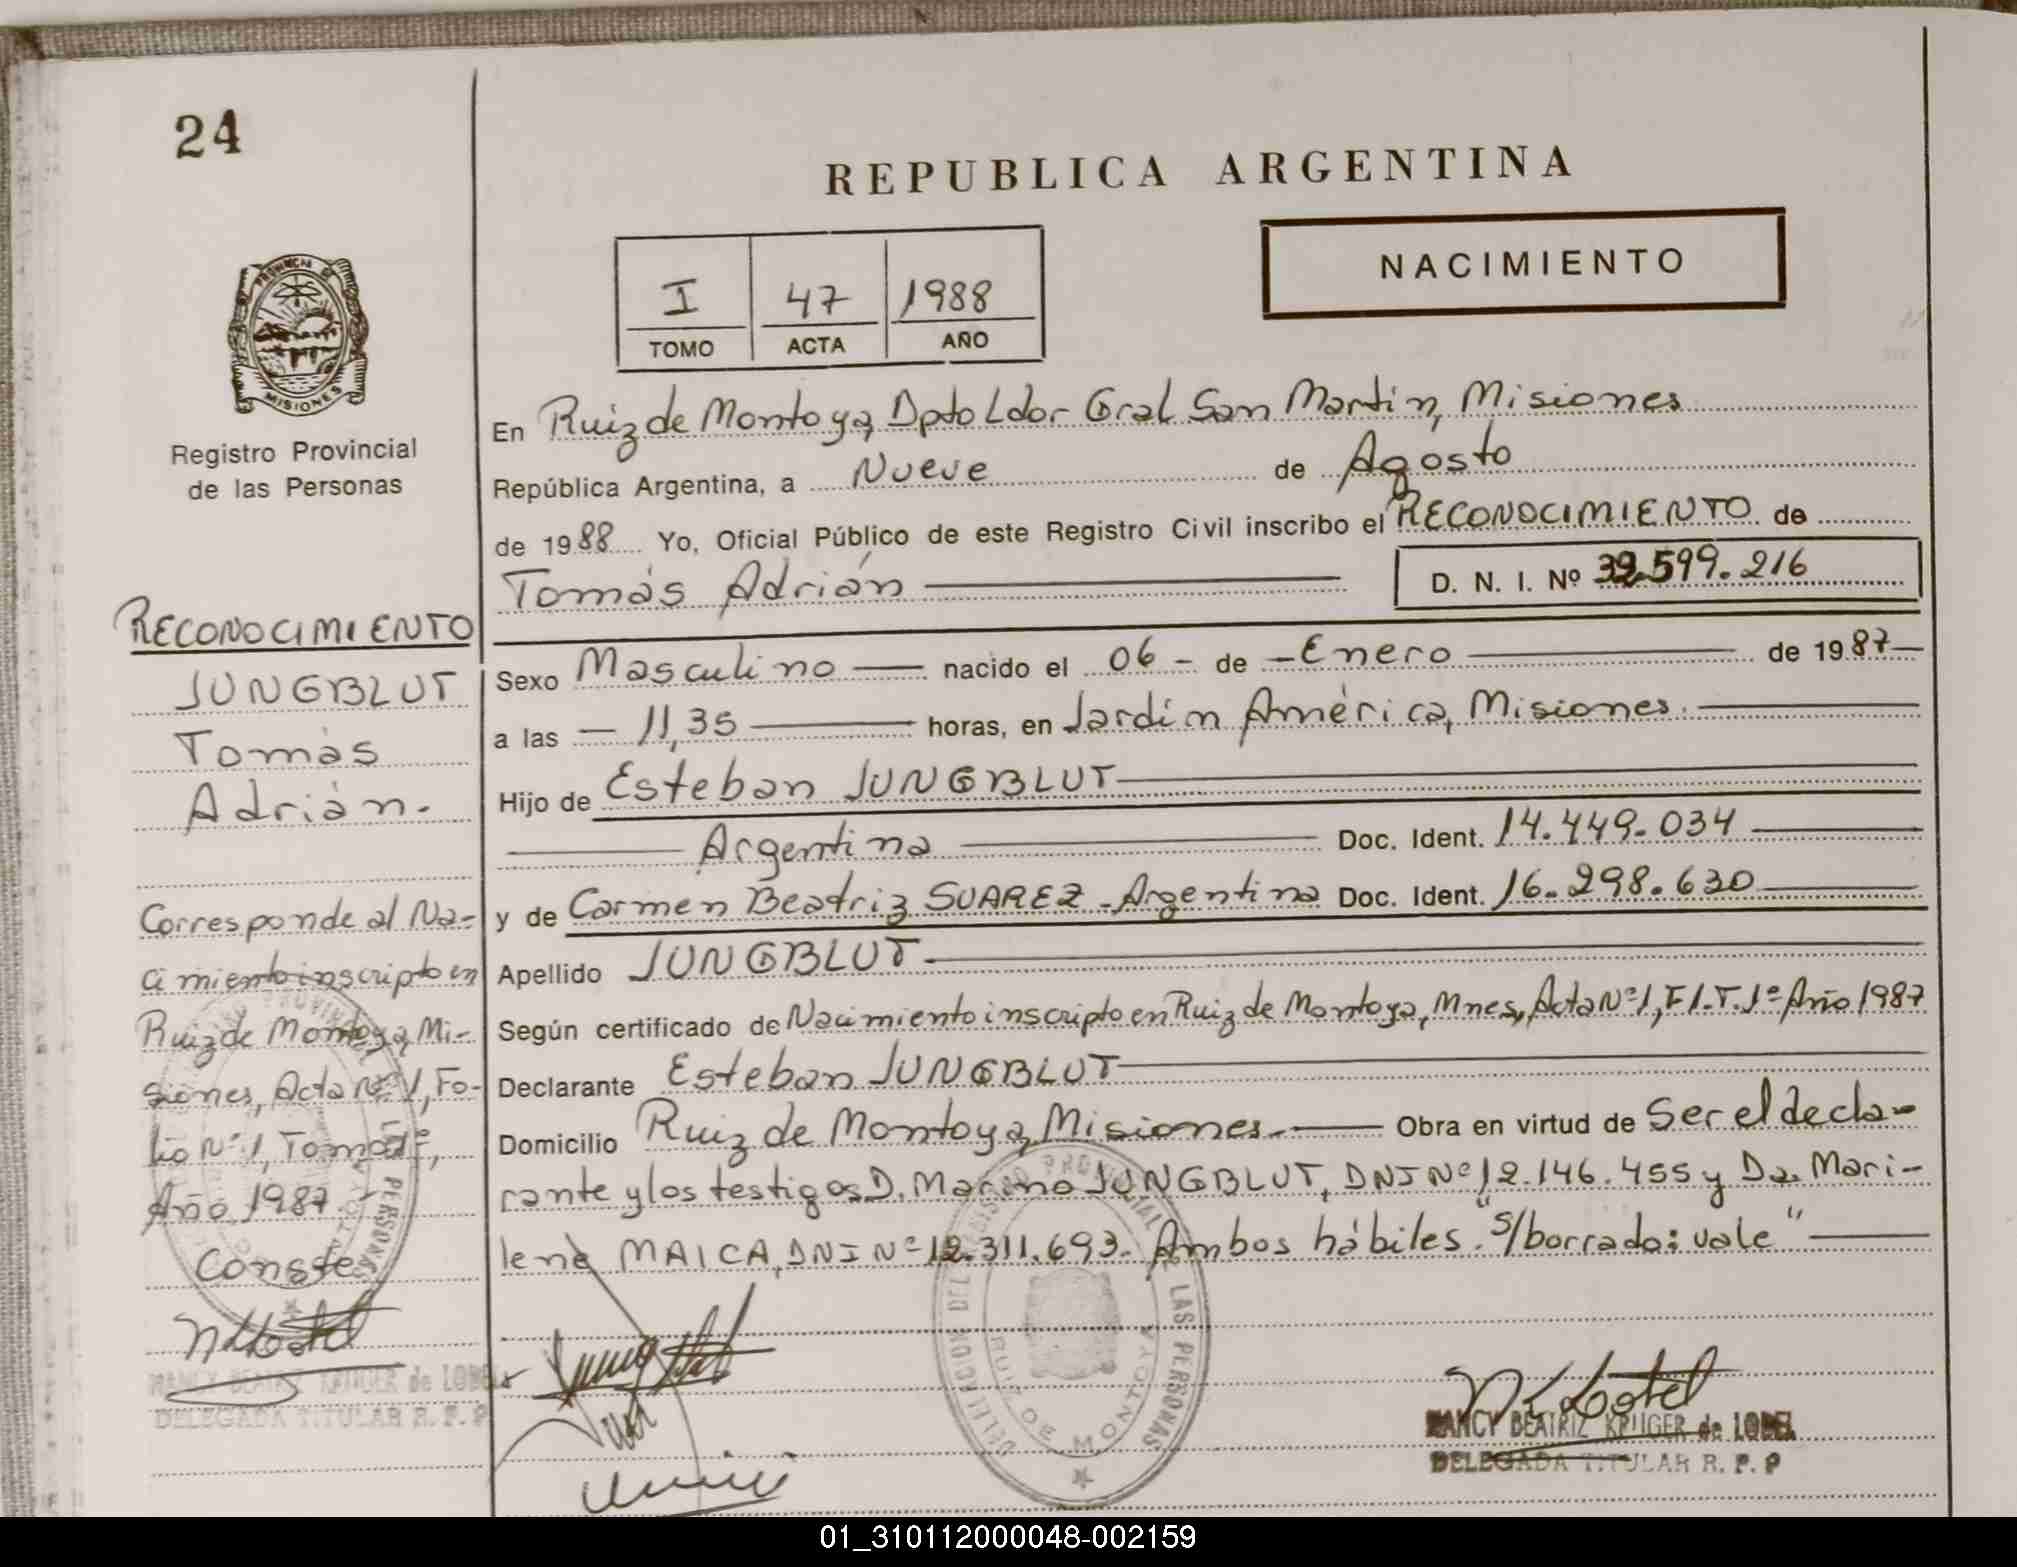 24
REPUBLICA ARGENTINA
NACIMIENTO
I 47 1988
TOMO ACTA AÑO
PROVINCIA DE
MISIONES
Registro Provincial
de las Personas
En Ruiz de Montoya, Dpto Ldor Gral San Martín, Misiones
República Argentina, a Nueve de Agosto
de 1988 Yo, Oficial Público de este Registro Civil inscribo el RECONOCIMIENTO de
Tomás Adrián
D. N. I. Nº 32.599.216
Sexo Masculino nacido el 06 - de - Enero de 1987
a las - 11,35 horas, en Jardín América, Misiones.
Hijo de Esteban JUNGBLUT
Argentina Doc. Ident. 14.449.034
y de Carmen Beatriz SUAREZ - Argentina Doc. Ident. 16.298.630
Apellido JUNGBLUT
Según certificado de Nacimiento inscripto en Ruiz de Montoya, Mnes, Acta Nº 1, Fl. T. 1º Año 1987
Declarante Esteban JUNGBLUT
Domicilio Ruiz de Montoya, Misiones. Obra en virtud de Ser el decla-
rante y los testigos D. Marino JUNGBLUT, DNI Nº 12.146.455 y Da. Mari-
lene MAICA, DNI Nº 12.311.693. Ambos hábiles. "S/borrado: vale"
RECONOCIMIENTO
JUNGBLUT
Tomás
Adrián.
Corresponde al Na-
cimiento inscripto en
Ruiz de Montoya, Mi-
siones, Acta Nº 1, Fo-
lio Nº 1, Tomo 1º,
Año 1987.
Conste
NANCY BEATRIZ KRUGER de LOBEL
DELEGADA TITULAR R. P. P
DELEGACION DEL REGISTRO PROVINCIAL DE LAS PERSONAS
RUIZ DE MONTOYA
NANCY BEATRIZ KRUGER de LOBEL
DELEGADA TITULAR R. P. P
01_310112000048-002159